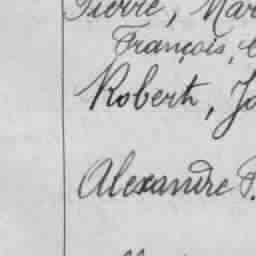 Pierre, Mar
François,
Robert, Jo
Alexandre P.